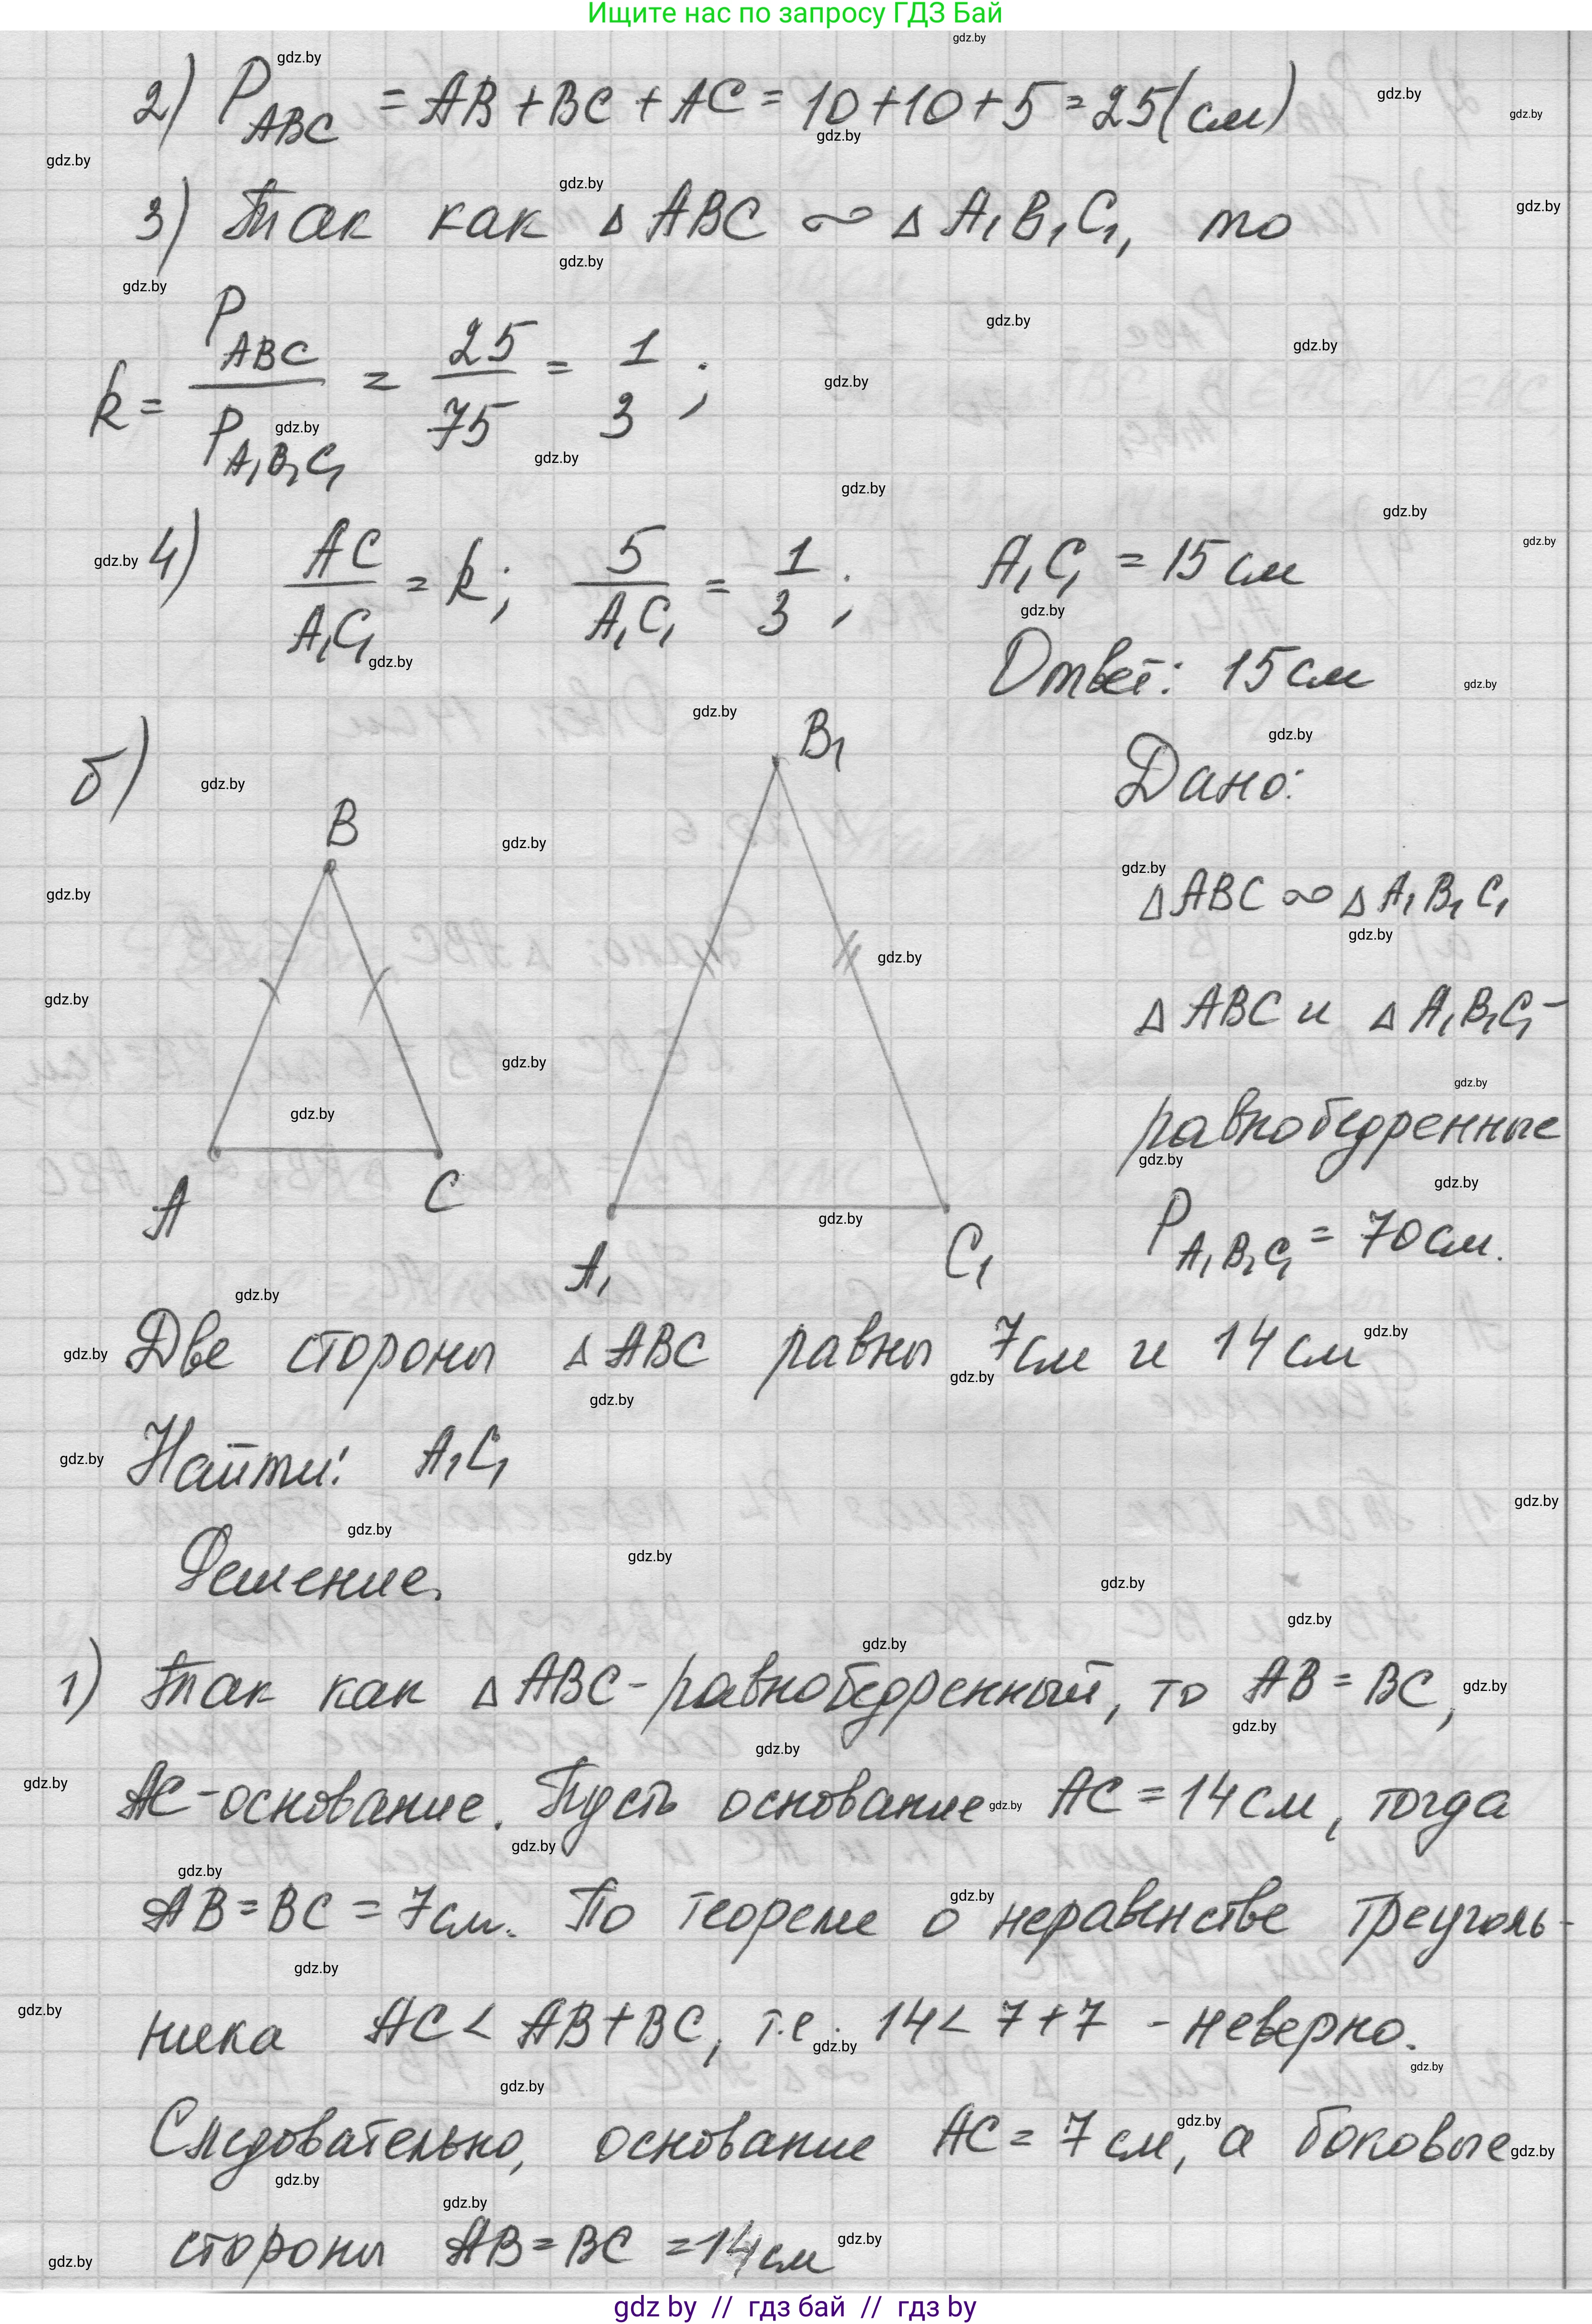 Ищите нас по запросу ГДЗ Бай
2) P_ABC = AB + BC + AC = 10 + 10 + 5 = 25 (см)
3) Так как Δ ABC ∞ Δ A₁B₁C₁, то
k = P_ABC / P_A₁B₁C₁ = 25/75 = 1/3 ;
4) AC / A₁C₁ = k; 5 / A₁C₁ = 1/3 ; A₁C₁ = 15 см
Ответ: 15 см
б)
B
B₁
A
C
A₁
C₁
Дано:
Δ ABC ∞ Δ A₁B₁C₁
Δ ABC и Δ A₁B₁C₁ -
равнобедренные
P_A₁B₁C₁ = 70 см.
Две стороны Δ ABC равны 7 см и 14 см
Найти: A₁C₁
Решение.
1) Так как Δ ABC - равнобедренный, то AB = BC,
AC - основание. Пусть основание AC = 14 см, тогда
AB = BC = 7 см. По теореме о неравенстве треуголь-
ника AC < AB + BC, т.е. 14 < 7 + 7 - неверно.
Следовательно, основание AC = 7 см, а боковые
стороны AB = BC = 14 см
gdz.by
gdz by // гдз бай // гдз by